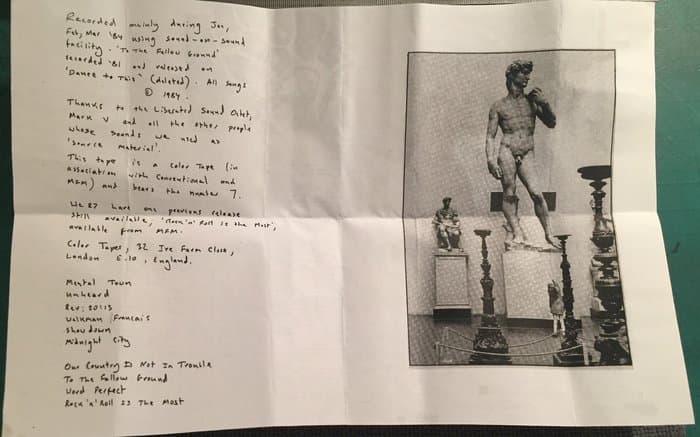 Recorded mainly during Jan,
Feb, Mar '84 using sound-on-sound
facility. 'To The Fallow Ground'
recorded '81 and released on
'Dance to This' (deleted). All songs
© 1984.
Thanks to the Liberated Sound Octet,
Mark V and all the other people
whose sounds we used as
'source material'.
This tape is a Color Tape (in
association with Conventional and
M&M) and bears the number 7.
We 27 have one previous release
still available, 'Rock'n'Roll is the Most',
available from M&M.
Color Tapes, 32 Ive Farm Close,
London E.10, England.
Mental Town
Unheard
Rev: 20:13
Walkman Francais
Showdown
Midnight City
Our Country Is Not In Trouble
To The Fallow Ground
Word Perfect
Rock'n'Roll Is The Most